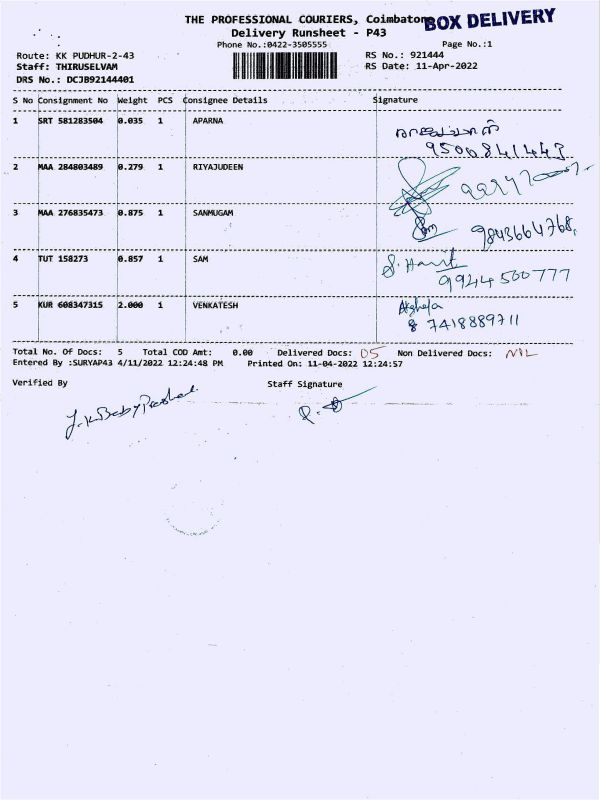 THE PROFESSIONAL COURIERS, Coimbatore
BOX DELIVERY
Delivery Runsheet - P43
Phone No.:0422-3505555
Page No.:1
Route: KK PUDHUR-2-43
RS No.: 921444
Staff: THIRUSELVAM
RS Date: 11-Apr-2022
DRS No.: DCJB92144401
S No Consignment No Weight PCS Consignee Details Signature
1 SRT 581283504 0.035 1 APARNA
9500841443
2 MAA 284803489 0.279 1 RIYAJUDEEN
3 MAA 276835473 0.875 1 SANMUGAM
Sam 9843664768
4 TUT 158273 0.857 1 SAM
S. Harit
9944500777
5 KUR 608347315 2.000 1 VENKATESH
8 7418889711
Total No. Of Docs: 5 Total COD Amt: 0.00 Delivered Docs: 05 Non Delivered Docs: NIL
Entered By :SURYAP43 4/11/2022 12:24:48 PM Printed On: 11-04-2022 12:24:57
Verified By Staff Signature